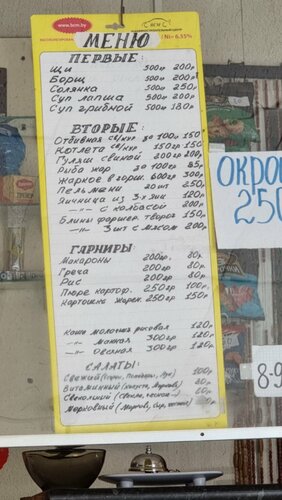 www.bcm.by
МЕНЮ
ПЕРВЫЕ:
Щи 500гр 200р.
Борщ 500гр 200р.
Солянка 500гр 250р.
Суп лапша 500гр 200р.
Суп грибной 500гр 180р.
ВТОРЫЕ:
Отбивная св/кур за 100гр 150
Котлета св/кур 150гр 150
Гуляш свиной 200гр 200р.
Риба жар за 100гр 85р.
Жаркое в горш. 600гр 300р.
Пельмени 20шт 250р.
Яичница из 3-х яиц 120р.
-"- с колбасой 200р.
Блины фаршер. творог 150р.
-"- 3шт с мясом 200р.
ГАРНИРЫ:
Макароны 200гр. 80р.
Греча 200гр. 80р.
Рис 200гр. 80р.
Пюре картоф. 250гр 100р.
Картошка жарен 250гр 150р.
Каша молочная рисовая 120р.
-"- манная 300гр 120р.
-"- Овсяная 300гр 120р.
САЛАТЫ:
Свежий (Огурцы, Помидоры, Лук) 100р.
Витаминный (капуста, Морковь) 80р.
Свекольный (свекла, чеснок) 60р.
Морковный (Морковь, сыр, чеснок)
ОКРО
250
8-9